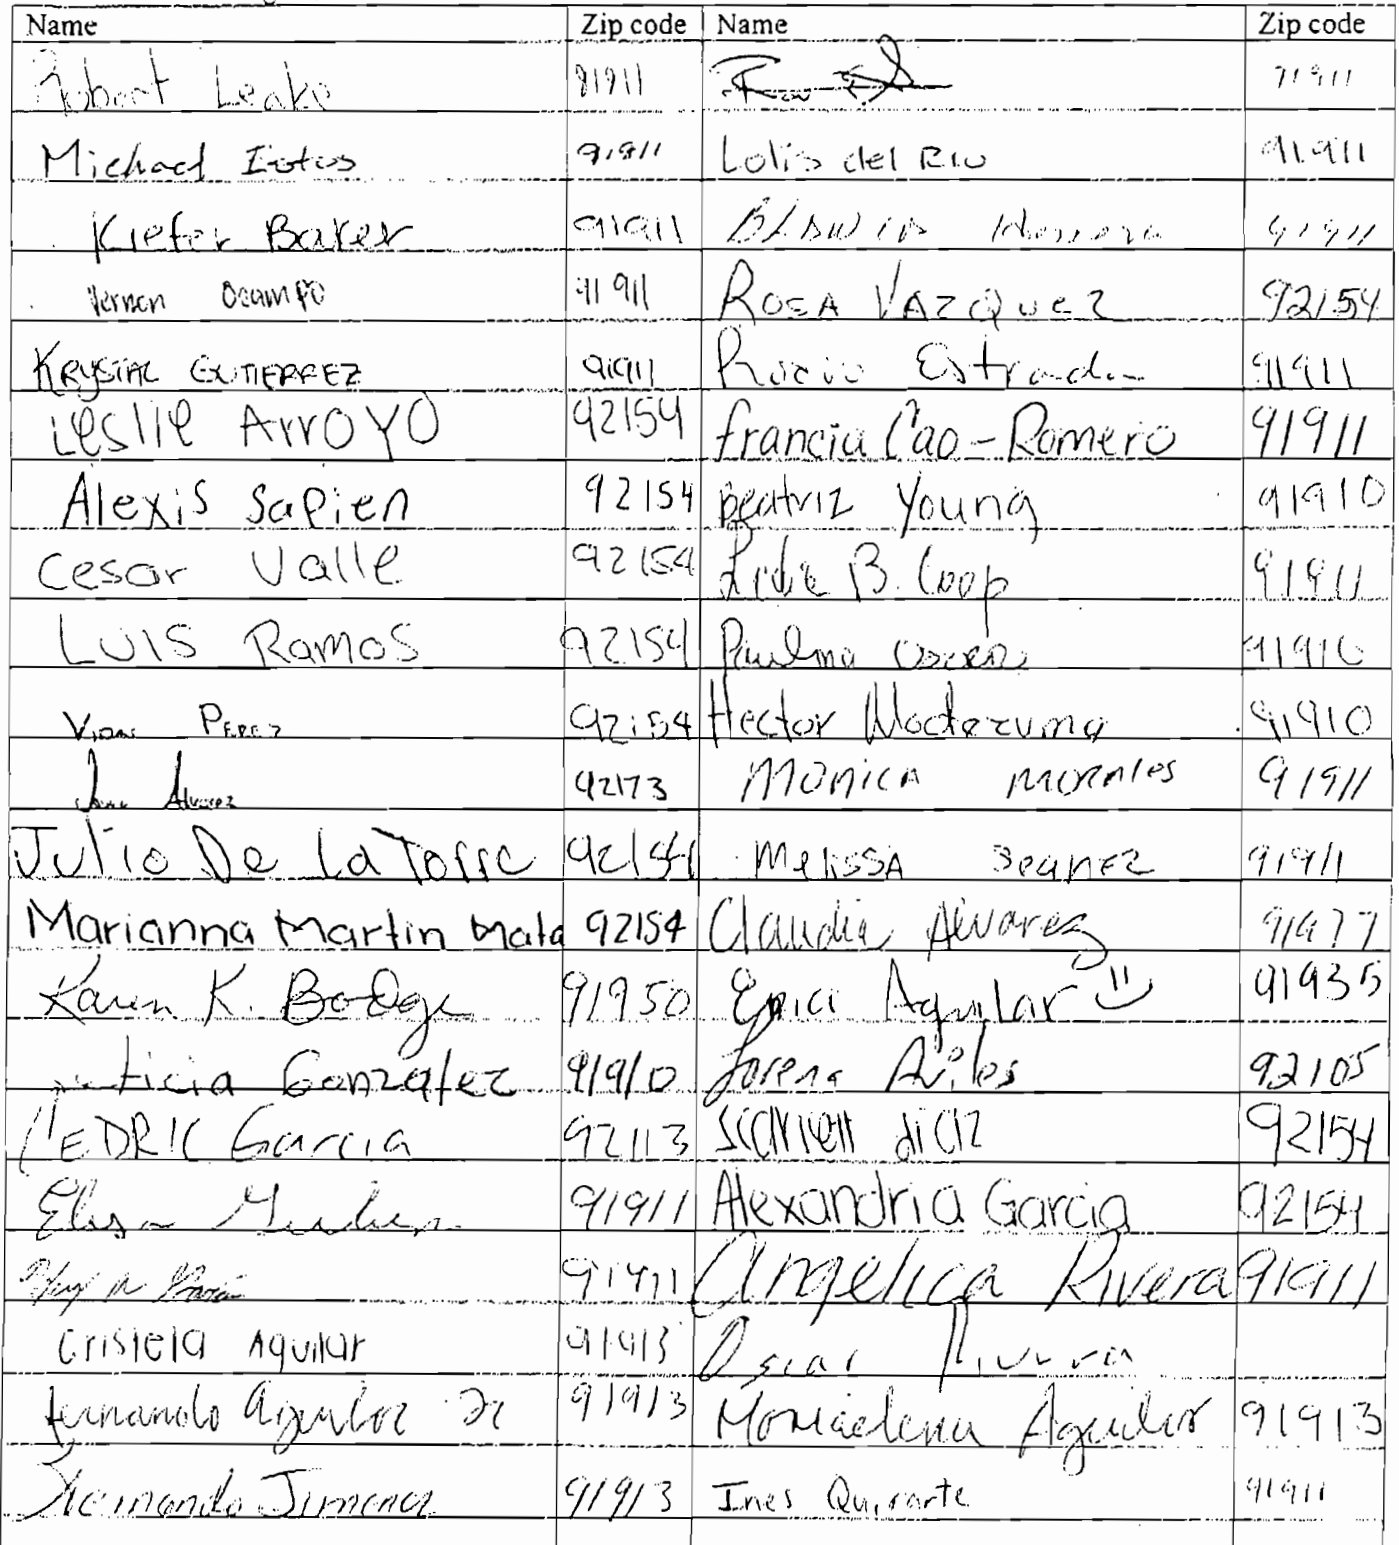 Name Zip code Name Zip code
Robert Leake 91911 91911
Michael 91911 Lolis del Rio 91911
Kiefer Baker 91911 Herrera 91911
Vernon Ocampo 91911 ROSA VAZQUEZ 92154
KRYSTAL GUTIERREZ 91911 Rocio Estrada 91911
Leslie Arroyo 92154 francia Cao-Romero 91911
Alexis Sapien 92154 beatriz Young 91910
Cesar Valle 92154 B. Coop 91911
LUIS Ramos 92154 91910
Vidal PEREZ 92154 Hector Moctezuma 91910
Alvarez 92173 MONICA MORALES 91911
Julio De La Torre 92154 MELISSA 91911
Marianna Martin Mata 92154 Claudia Alvarez 91977
Karen K. 91950 Erica Aguilar 91935
Gonzalez 91910 Lorena Aviles 92105
CEDRIC Garcia 92113 diaz 92154
91911 Alexandria Garcia 92154
91911 Angelica Rivera 91911
Crisiela Aguilar 91913 Oscar Rivera
fernando Aguilar Jr 91913 Mariaelena Aguilar 91913
Fernando Jimenez 91913 Ines Quirarte 91911